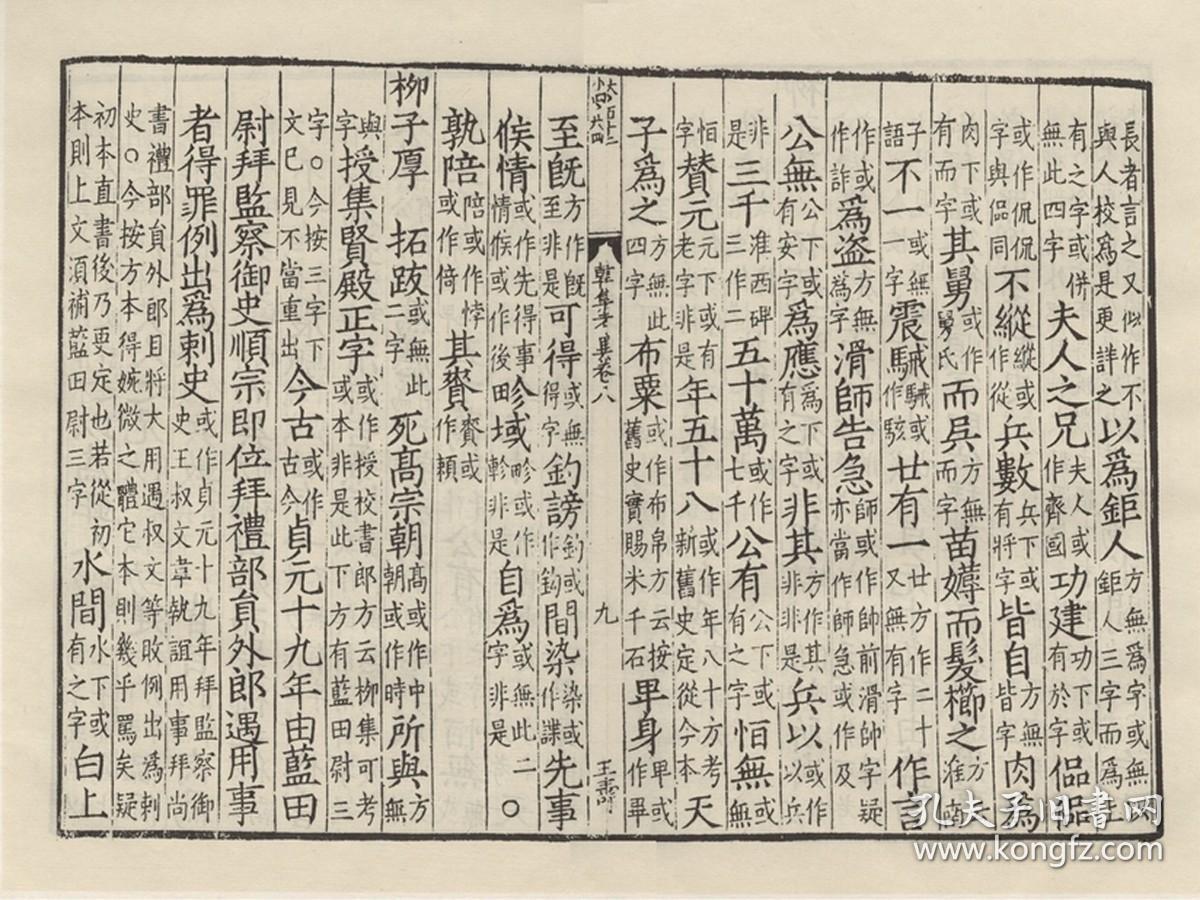 長者言之又似作不與人校爲是更詳之以爲鉅人方無爲字或無以鉅人三字而爲上
有之字或併無此四字夫人之兄夫人或作齊國功建功下或有於字偘偘
或作侃侃字與偘同不縱縱或作從兵數兵下或有將字皆自方無皆字肉爲
肉下或有而字其舅或作舅氏而吳方無而字苗薅而髮櫛之方
語子不一或無一字震駴駴或作駭廿有一廿方作二十又無有字作言
作或作詐爲盗方無爲字滑師告急師或作帥前滑帥字疑亦當作師急或作及
公無公下或有安字爲應爲下或有之字非其方作其非非是兵以或作以兵
非是三千淮西碑三作二五十萬或作七千公有公下或有之字恒無或無
恒字贊元元下或有老字非是年五十八或作年八十方考新舊史定從今本天
子爲之方無此四字布粟或作布帛方云按舊史實賜米千石畢身
韓集考異卷八 九 王壽
至旣方作旣至非是可得或無得字釣謗釣或作鈎間染染或作諜先事
候情或作先得事情候或作後畛域畛或作軫非是自爲或無此二字非是○
孰陪陪或作悖或作倚其賚賚或作賴
柳子厚 拓跋或無此二字死高宗朝高或作中朝或作時所與方無
與字○今按三字下授集賢殿正字或作授校書郎方云柳集可考或本非是此下方有藍田尉三
字○今按三字下文已見不當重出今古或作古今貞元十九年由藍田
尉拜監察御史順宗即位拜禮部員外郎遇用事
者得罪例出爲刺史或作貞元十九年拜監察御史王叔文韋執誼用事拜尚
書禮部員外郎且將大用遇叔文等敗例出爲刺史○今按方本得婉微之體它本則幾乎罵矣疑
初本直書後乃更定也若從初本則上文須補藍田尉三字水間水下或有之字白上
孔夫子旧书网
www.kongfz.com